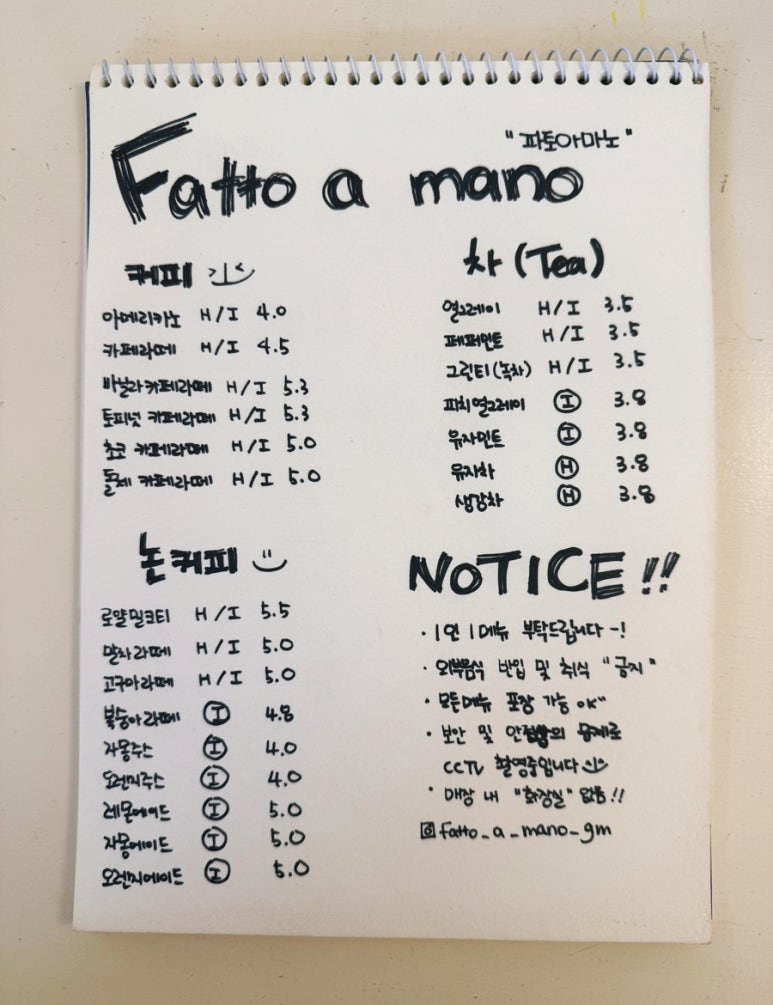 "파토아마노"
Fatto a mano
커피
아메리카노 H/I 4.0
카페라떼 H/I 4.5
바닐라카페라떼 H/I 5.3
토피넛 카페라떼 H/I 5.3
초코 카페라떼 H/I 5.0
돌체 카페라떼 H/I 5.0
논커피
로얄밀크티 H/I 5.5
말차라떼 H/I 5.0
고구마라떼 H/I 5.0
복숭아라떼 I 4.8
자몽주스 I 4.0
오렌지주스 I 4.0
레몬에이드 I 5.0
자몽에이드 I 5.0
오렌지에이드 I 5.0
차 (Tea)
얼그레이 H/I 3.5
페퍼민트 H/I 3.5
그린티(녹차) H/I 3.5
피치얼그레이 I 3.8
유자민트 I 3.8
유자차 H 3.8
생강차 H 3.8
NOTICE!!
· 1인 1메뉴 부탁드립니다~!
· 외부음식 반입 및 취식 "금지"
· 모든메뉴 포장 가능 OK"
· 보안 및 안전상의 문제로
CCTV 촬영중입니다
· 매장 내 "화장실" 없음!!
fatto_a_mano_gm